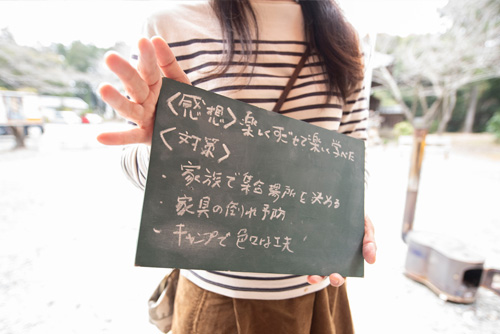 〈感想〉楽しくすごせて楽しく学べた
〈対策〉
・家族で集合場所を決める
・家具の倒れ予防
・キャンプで色々な工夫